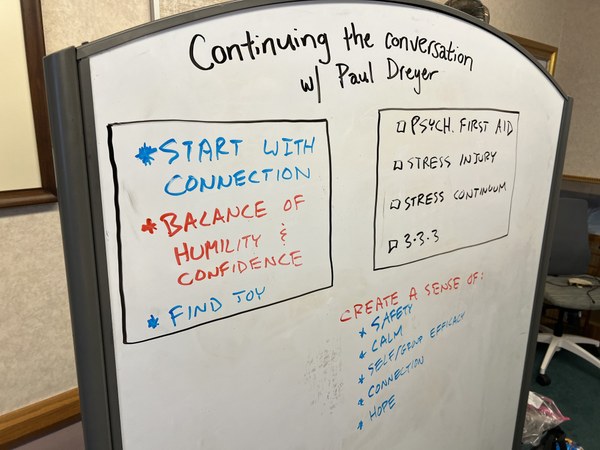 Continuing the conversation
w/ Paul Dreyer
* START WITH
CONNECTION
* BALANCE OF
HUMILITY &
CONFIDENCE
* FIND JOY
□ PSYCH. FIRST AID
□ STRESS INJURY
□ STRESS CONTINUUM
□ 3·3·3
CREATE A SENSE OF:
* SAFETY
* CALM
* SELF/GROUP EFFICACY
* CONNECTION
* HOPE